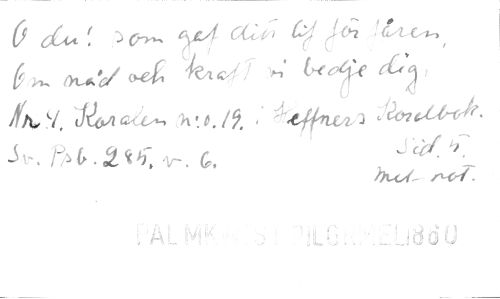 O du! som gaf ditt lif för fåren,
Om nåd och kraft vi bedje dig,
Nr 4. Koralen n:o. 19. i Hæffners Koralbok.
Sv. Psb. 285. v. 6.
Sid. 5.
mel-not.
PALMK